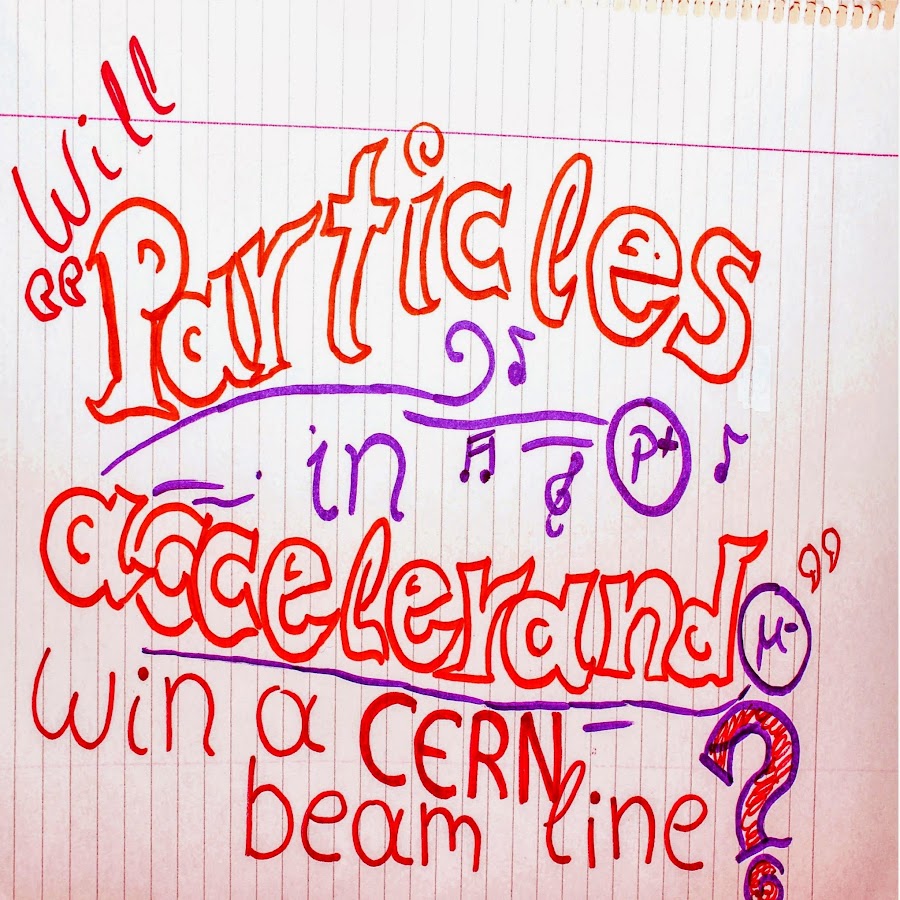 Will
“Particles
in P+
accelerando”
μ-
win a CERN
beam line?